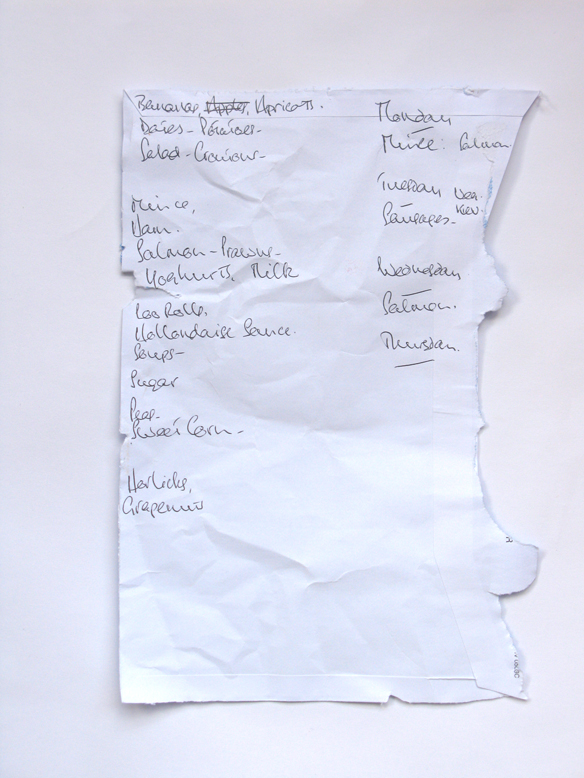 Bananas Apples, Apricots.
Dates - Potatoes -
Salad - Croutons -
Mince,
Ham.
Salmon - Prawns -
Yoghurts, Milk
Loo Rolls,
Hollandaise Sauce.
Soups -
Sugar
Peas -
Sweet Corn -
Horlicks,
Grapenuts
Monday
Mince: Salmon
Tuesday
Sausages - Kiev
Wednesday
Salmon.
Thursday.